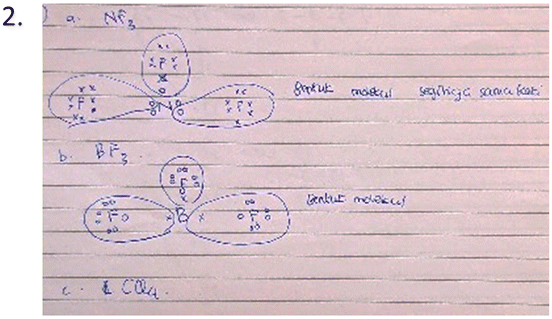 2.
a. NF3
F
F N F
Bentuk molekul segitiga sama kaki
b. BF3.
F
F B F
Bentuk molekul
c. CCl4.